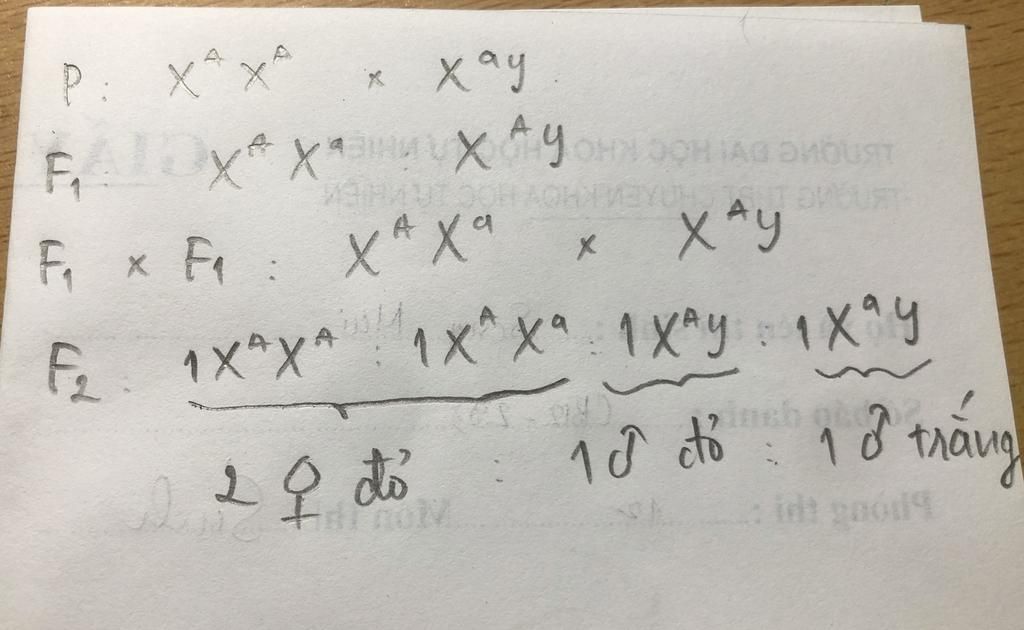 P: X^A X^A x X^a y
F₁ X^A X^a : X^A y
F₁ x F₁ : X^A X^a x X^A y
F₂ : 1X^A X^A : 1X^A X^a : 1X^A y : 1X^a y
2 ♀ đỏ : 1♂ đỏ : 1♂ trắng